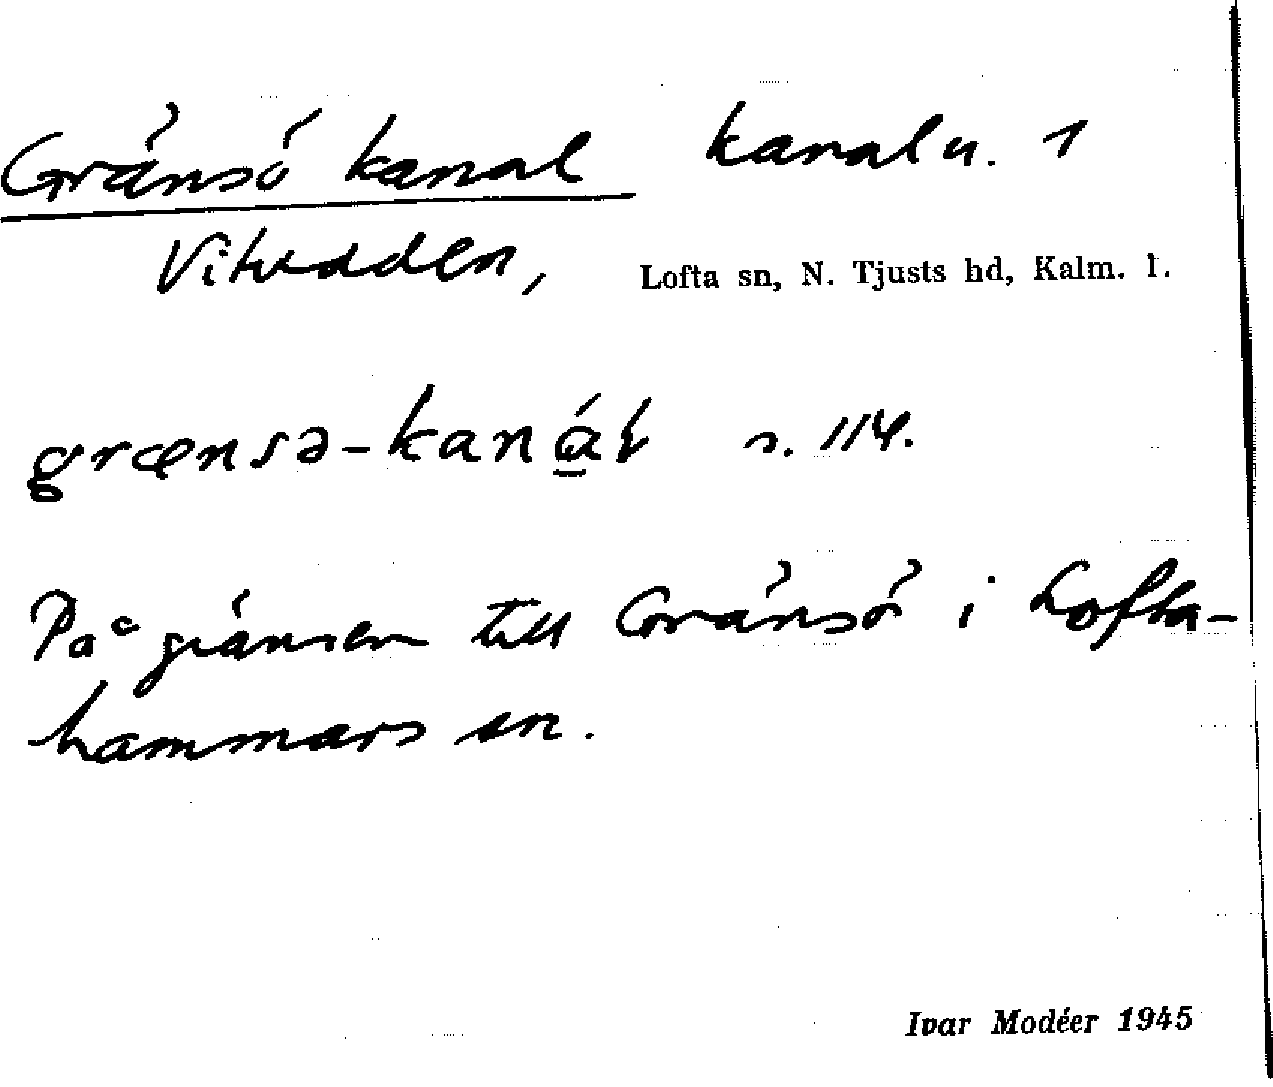 Gränsö kanal kanal u. 1
Vitudden, Lofta sn, N. Tjusts hd, Kalm. l.
grænsə-kaná̠l s. 114.
På gränsen till Gränsö i Lofta-
hammars sn.
Ivar Modéer 1945